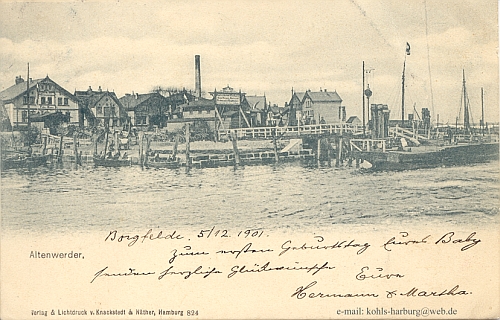 Borgfelde. 5/12 1901.
Altenwerder.
Zum ersten Geburtstag Eures Baby
senden herzliche Glückwünsche
Eure
Hermann & Martha.
Verlag & Lichtdruck v. Knackstedt & Näther, Hamburg 824
e-mail: kohls-harburg@web.de